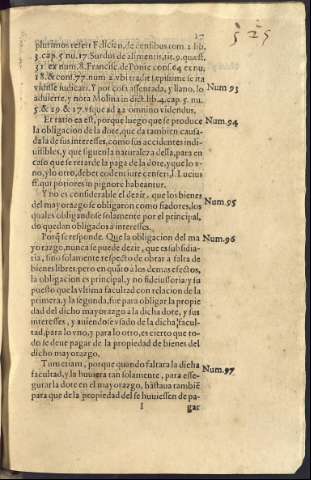 17
525
plurimos refert Felician, de censibus tom. 2 lib.
3. cap. 5 nu. 17. Surdus de alimentis, tit. 9. quæst.
31. ex num. 8. Francisc. de Ponte consi. 64 ex nu.
18. & consi. 77. num 2. vbi tradit sepissime se ita
vidisse iudicari. Y por cosa assentada, y llano, lo
Num 93
aduierte, y nota Molina in dict. lib. 4. cap. 5. nu.
5. & 29 & 17. vsque ad 22 omnino videndus.
Et ratio ea est, porque luego que se produce
Num 94
la obligacion de la dote, queda tambien causa-
da la de sus interesses, como sus accidentes indi-
uisibles, y que siguen la naturaleza della, para en
caso que se retarde la paga de la dote, y que lo v-
no, y lo otro, debet eodem iure censeri, l. Lucius
ff. qui potiores in pignore habeantur.
Y no es considerable el dezir, que los bienes
Num 95
del mayorazgo se obligaron como fiadores, los
quales obligandose solamente por el principal,
no quedan obligados a interesses.
Porq̃ se responde. Que la obligacion del ma
Num. 96
yorazgo, nunca se puede dezir, que es subsidia-
ria, sino solamente respecto de obrar a falta de
bienes libres, pero en quãto a los demas efectos,
la obligacion es principal, y no fideiussoria: y su
puesto que la vltima facultad con relacion de la
primera, y la segunda, fue para obligar la propie
dad del dicho mayorazgo a la dicha dote, y sus
interesses, y auiendose vsado de la dicha facul-
tad, para lo vno, y para lo otro, es cierto que to-
do se deue pagar de la propiedad de bienes del
dicho mayorazgo.
Tum etiam, porque quando faltara la dicha
Num. 97
facultad, y la huuiera tan solamente, para asse-
gurar la dote en el mayorazgo, bastaua tambiẽ
para que de la propiedad del se huuiessen de pa-
I
gar